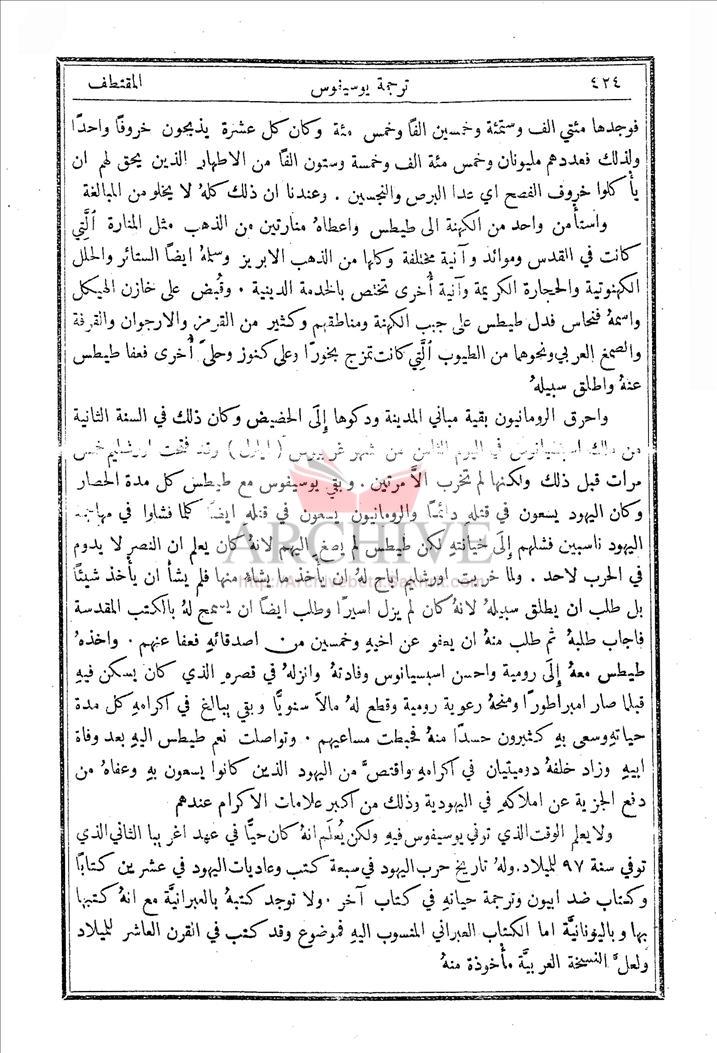 ٤٢٤
ترجمة يوسيفوس
المقتطف
فوجدها مئتي الف وستمئة وخمسين الفًا وخمس مئة وكان كل عشرة يذبحون خروفًا واحدًا
ولذلك فعددهم مليونان وخمس مئة الف وخمسة وستون الفًا من الاطهار الذين يحق لهم ان
يأكلوا خروف الفصح اي عدا البرص والنجسين . وعندنا ان ذلك كلهُ لا يخلو من المبالغة
واستأمن واحد من الكهنة الى طيطس واعطاهُ منارتين من الذهب مثل المنارة ٱلَّتِي
كانت في القدس وموائد وآنية مختلفة وكلها من الذهب الابريز وسلمهُ ايضًا الستائر والحلل
الكهنوتية والحجارة الكريمة وآنية أُخرى تختص بالخدمة الدينية . وقُبض على خازن الهيكل
واسمهُ فنحاس فدل طيطس على جبب الكهنة ومناطقهم وكثير من القرمز والارجوان والقرفة
والصمغ العربي ونحوها من الطيوب ٱلَّتِي كانت تمزج بخورًا وعلى كنوز وحلىً أُخرى فعفا طيطس
عنهُ واطلق سبيلهُ
واحرق الرومانيون بقية مباني المدينة ودكوها إِلَى الحضيض وكان ذلك في السنة الثانية
من ملك اسبسيانوس في اليوم الثامن من شهر غربيوس ( ايلول ) وقد فتحت اورشليم خمس
مرات قبل ذلك ولكنها لم تخرب الاَّ مرتين . وبقي يوسيفوس مع طيطس كل مدة الحصار
وكان اليهود يسعون في قتله دائمًا والرومانيون يسعون في قتله ايضًا كلما فشلوا في مهاجمة
اليهود ناسبين فشلهم إِلَى خيانتهِ لكن طيطس لم يصغِ اليهم لانهُ كان يعلم ان النصر لا يدوم
في الحرب لاحد . ولما خربت اورشليم اباح لهُ ان يأخذ ما يشاءُ منها فلم يشأ ان يأخذ شيئًا
بل طلب ان يطلق سبيلهُ لانهُ كان لم يزل اسيرًا وطلب ايضًا ان يسمح لهُ بالكتب المقدسة
فاجاب طلبهُ ثم طلب منهُ ان يعفو عن اخيهِ وخمسين من اصدقائهِ فعفا عنهم . واخذهُ
طيطس معهُ إِلَى رومية واحسن اسبسيانوس وفادتهُ وانزلهُ في قصرهِ الذي كان يسكن فيهِ
قبلما صار امبراطورًا ومنحهُ رعوية رومية وقطع لهُ مالاً سنويًّا وبقي يبالغ في اكرامهِ كل مدة
حياتهِ وسعى بهِ كثيرون حسدًا منهُ فحبطت مساعيهم . وتواصلت نعم طيطس اليهِ بعد وفاة
ابيهِ وزاد خلفهُ دوميتيان في اكرامهِ واقتصَّ من اليهود الذين كانوا يسعون بهِ وعفاهُ من
دفع الجزية عن املاكهِ في اليهودية وذلك من اكبر علامات الاكرام عندهم
ولا يعلم الوقت الذي توفي يوسيفوس فيهِ ولكن يُعلَم انهُ كان حيًّا في عهد اغريبا الثاني الذي
توفي سنة ٩٧ للميلاد . ولهُ تاريخ حرب اليهود في سبعة كتب وعاديات اليهود في عشرين كتابًا
وكتاب ضد ابيون وترجمة حياتهِ في كتاب آخر . ولا توجد كتبهُ بالعبرانيَّة مع انهُ كتبها
بها وباليونانيَّة اما الكتاب العبراني المنسوب اليهِ فموضوع وقد كتب في القرن العاشر للميلاد
ولعلَّ النسخة العربيَّة مأخوذة منهُ
ARCHIVE